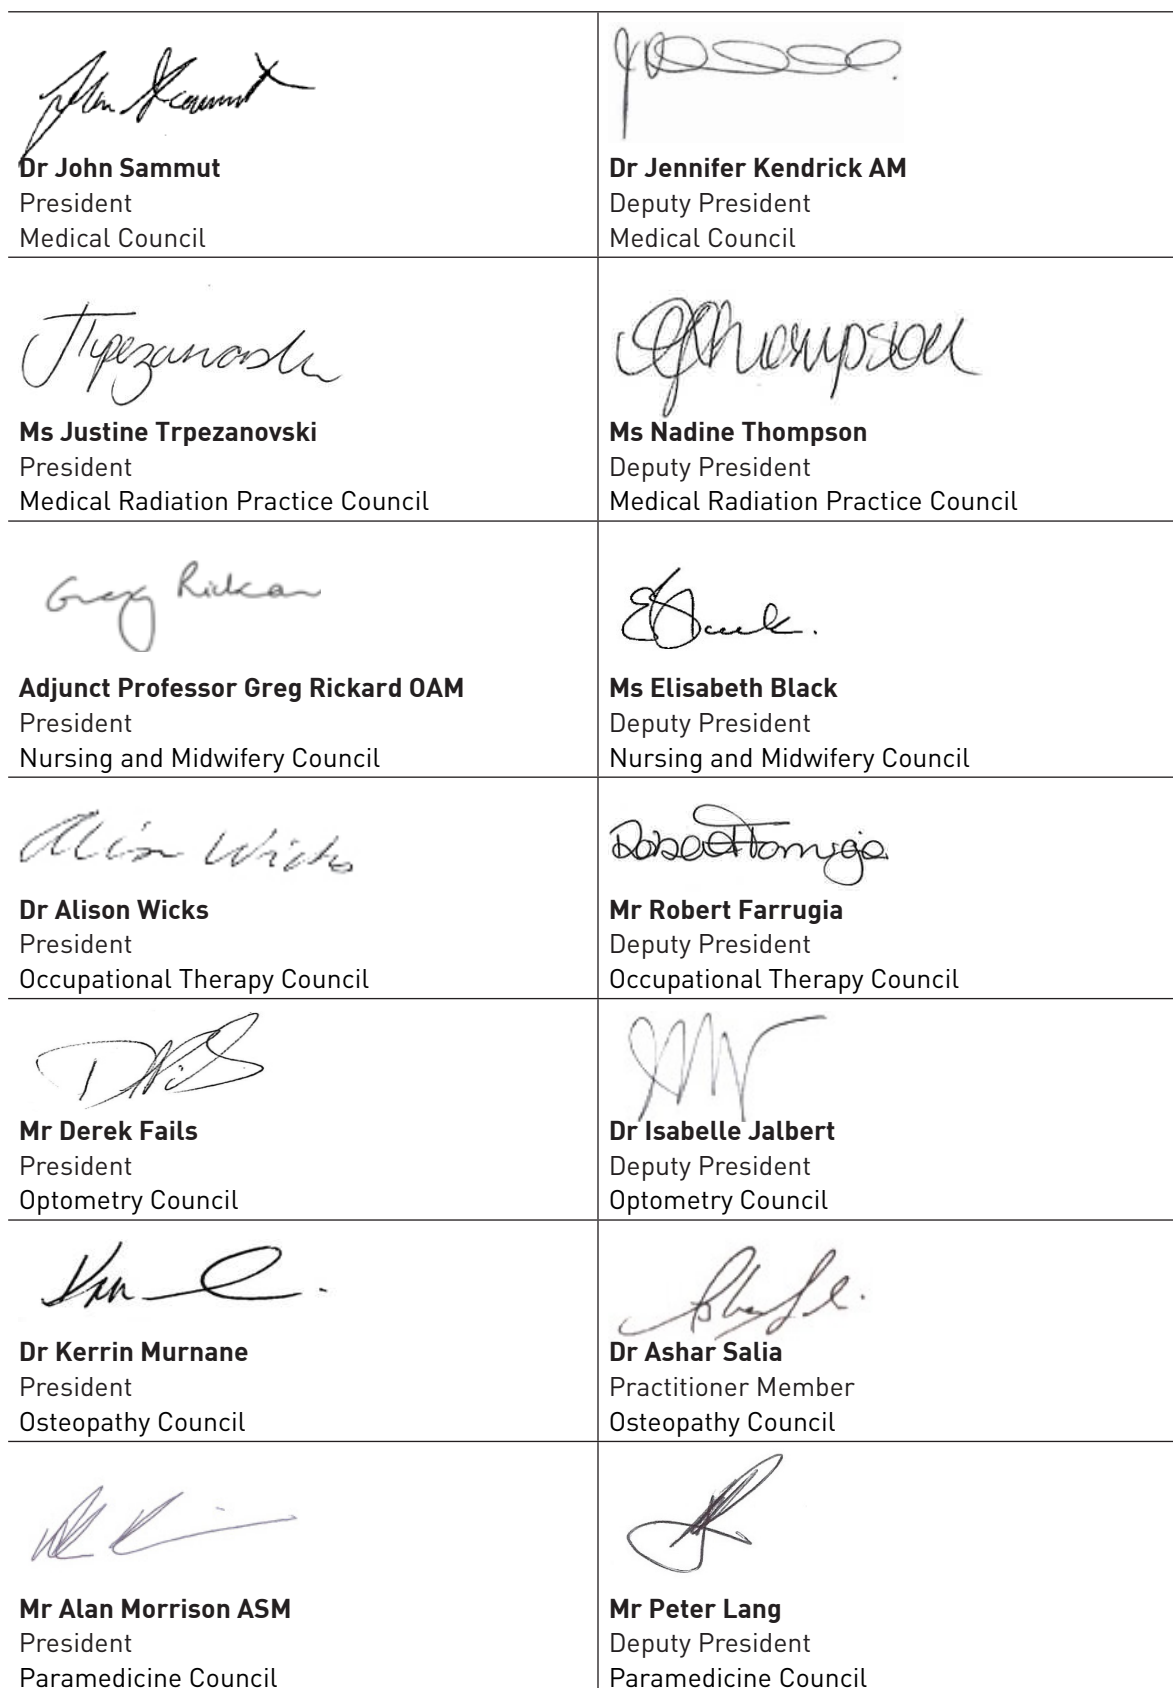 Dr John Sammut
President
Medical Council
Dr Jennifer Kendrick AM
Deputy President
Medical Council
Ms Justine Trpezanovski
President
Medical Radiation Practice Council
Thompson
Ms Nadine Thompson
Deputy President
Medical Radiation Practice Council
Greg Rickar
Adjunct Professor Greg Rickard OAM
President
Nursing and Midwifery Council
Ms Elisabeth Black
Deputy President
Nursing and Midwifery Council
Alison Wicks
Dr Alison Wicks
President
Occupational Therapy Council
Mr Robert Farrugia
Deputy President
Occupational Therapy Council
Mr Derek Fails
President
Optometry Council
Dr Isabelle Jalbert
Deputy President
Optometry Council
Dr Kerrin Murnane
President
Osteopathy Council
Dr Ashar Salia
Practitioner Member
Osteopathy Council
Mr Alan Morrison ASM
President
Paramedicine Council
Mr Peter Lang
Deputy President
Paramedicine Council